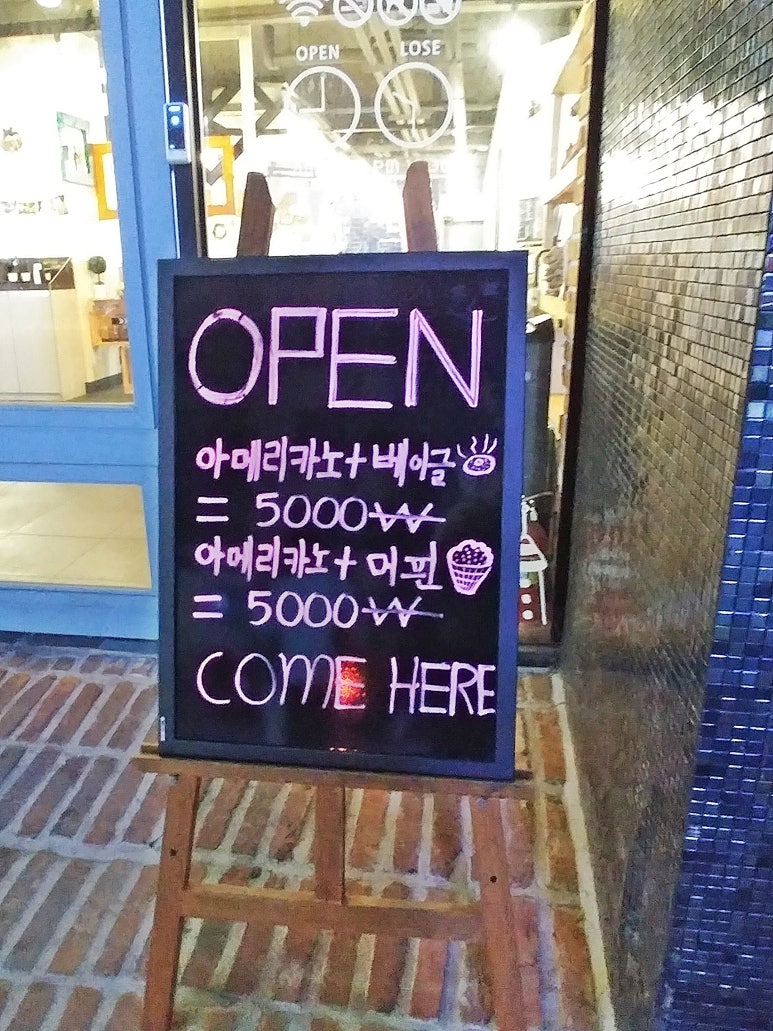 OPEN
LOSE
OPEN
아메리카노+베이글
= 5000₩
아메리카노+머핀
= 5000₩
COME HERE